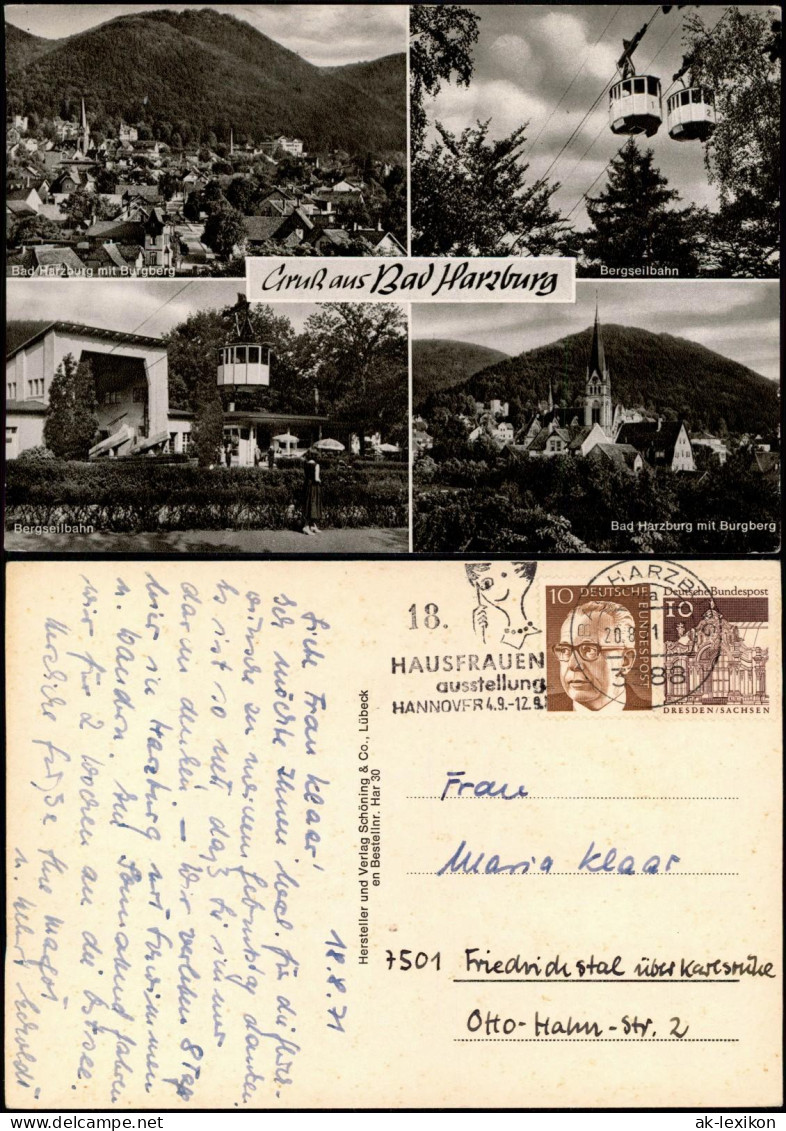 Bad Harzburg mit Burgberg
Bergseilbahn
Gruß aus Bad Harzburg
Bergseilbahn
Bad Harzburg mit Burgberg
18.
HAUSFRAUEN
ausstellung
HANNOVER 4.9.-12.9.
10 DEUTSCHE BUNDESPOST
HARZB
a
20.8. 71
3388
Deutsche Bundespost
10
DRESDEN/SACHSEN
18.8.71
Liebe Frau Klaar!
Ich möchte Ihnen herzl. für die Glück-
wünsche zu meinem Geburtstag danken.
Es ist so nett daß Sie immer
daran denken. – Wir verleben 8 Tage
hier in Harzburg mit Schwimmen
u. Wandern. Am Sonnabend fahren
wir für 2 Wochen an die Ostsee.
Herzliche Grüße Ihre Margot
u.
Hersteller und Verlag Schöning & Co., Lübeck
en Bestellnr. Har 30
Frau
Maria Klaar
7501 Friedrichstal über Karlsruhe
Otto-Hahn-Str. 2
ak-lexikon